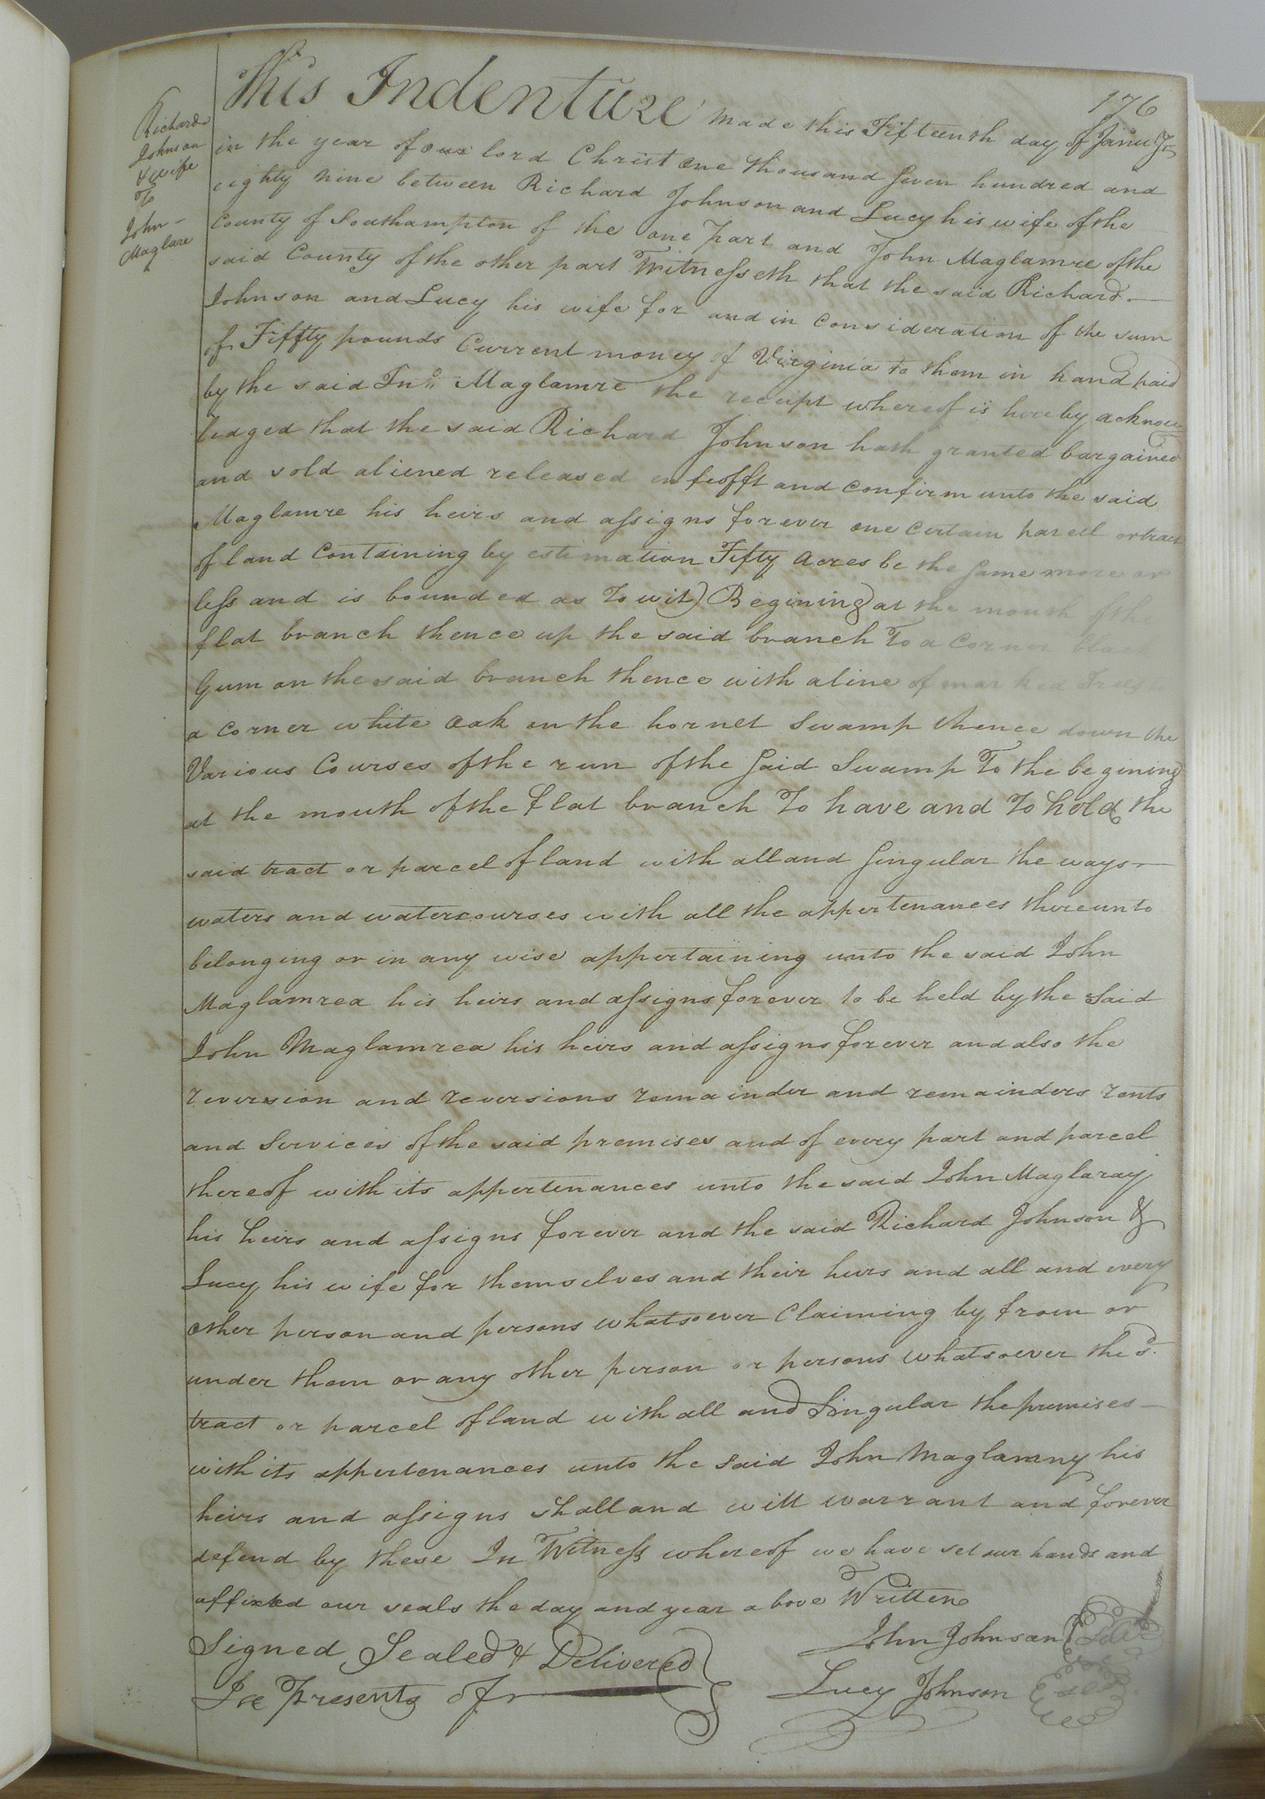 176
Richard
Johnson
& wife
To
John
Maglare
This Indenture made this Fifteenth day of Janu.ry
in the year of our lord Christ one thousand Seven hundred and
eighty nine between Richard Johnson and Lucy his wife of the
County of Southampton of the one part and John Maglamre of the
said County of the other part Witnesseth that the said Richard
Johnson and Lucy his wife for and in consideration of the sum
of Fiffty pounds Current money of Virginia to them in hand paid
by the said Jno. Maglamre the receipt whereof is hereby acknow
ledged that the said Richard Johnson hath granted bargained
and sold aliened released enfeofft and confirm unto the said
Maglamre his heirs and assigns forever one certain parcell or tract
of land Containing by estimation Fifty Acres be the Same more or
less and is bounded as To wit) Begining at the mouth of the
flat branch thence up the said branch To a Corner black
Gum on the said branch thence with a line of marked Trees to
a corner white Oak on the hornet Swamp thence down the
Various Courses of the run of the Said Swamp To the begining
at the mouth of the flat branch To have and To hold the
said tract or parcel of land with all and Singular the ways
waters and watercourses with all the appertenances thereunto
belonging or in any wise appertaining unto the said John
Maglamrea his heirs and assigns forever to be held by the Said
John Maglamrea his heirs and assigns forever and also the
reversion and reversions remainder and remainders rents
and Services of the said premises and of every part and parcel
thereof with its appertenances unto the said John Maglaray
his heirs and assigns forever and the said Richard Johnson &
Lucy his wife for themselves and their heirs and all and every
other person and persons whatsoever Claiming by from or
under them or any other person or persons whatsoever the sd.
tract or parcel of land with all and Singular the premises
with its appertenances unto the said John Maglamny his
heirs and assigns shall and will warrant and forever
defend by these In Witness whereof we have set our hands and
affixed our seals the day and year above Written
Signed Sealed & Delivered
In Presents of
John Johnson Seal
Lucy Johnson Seal